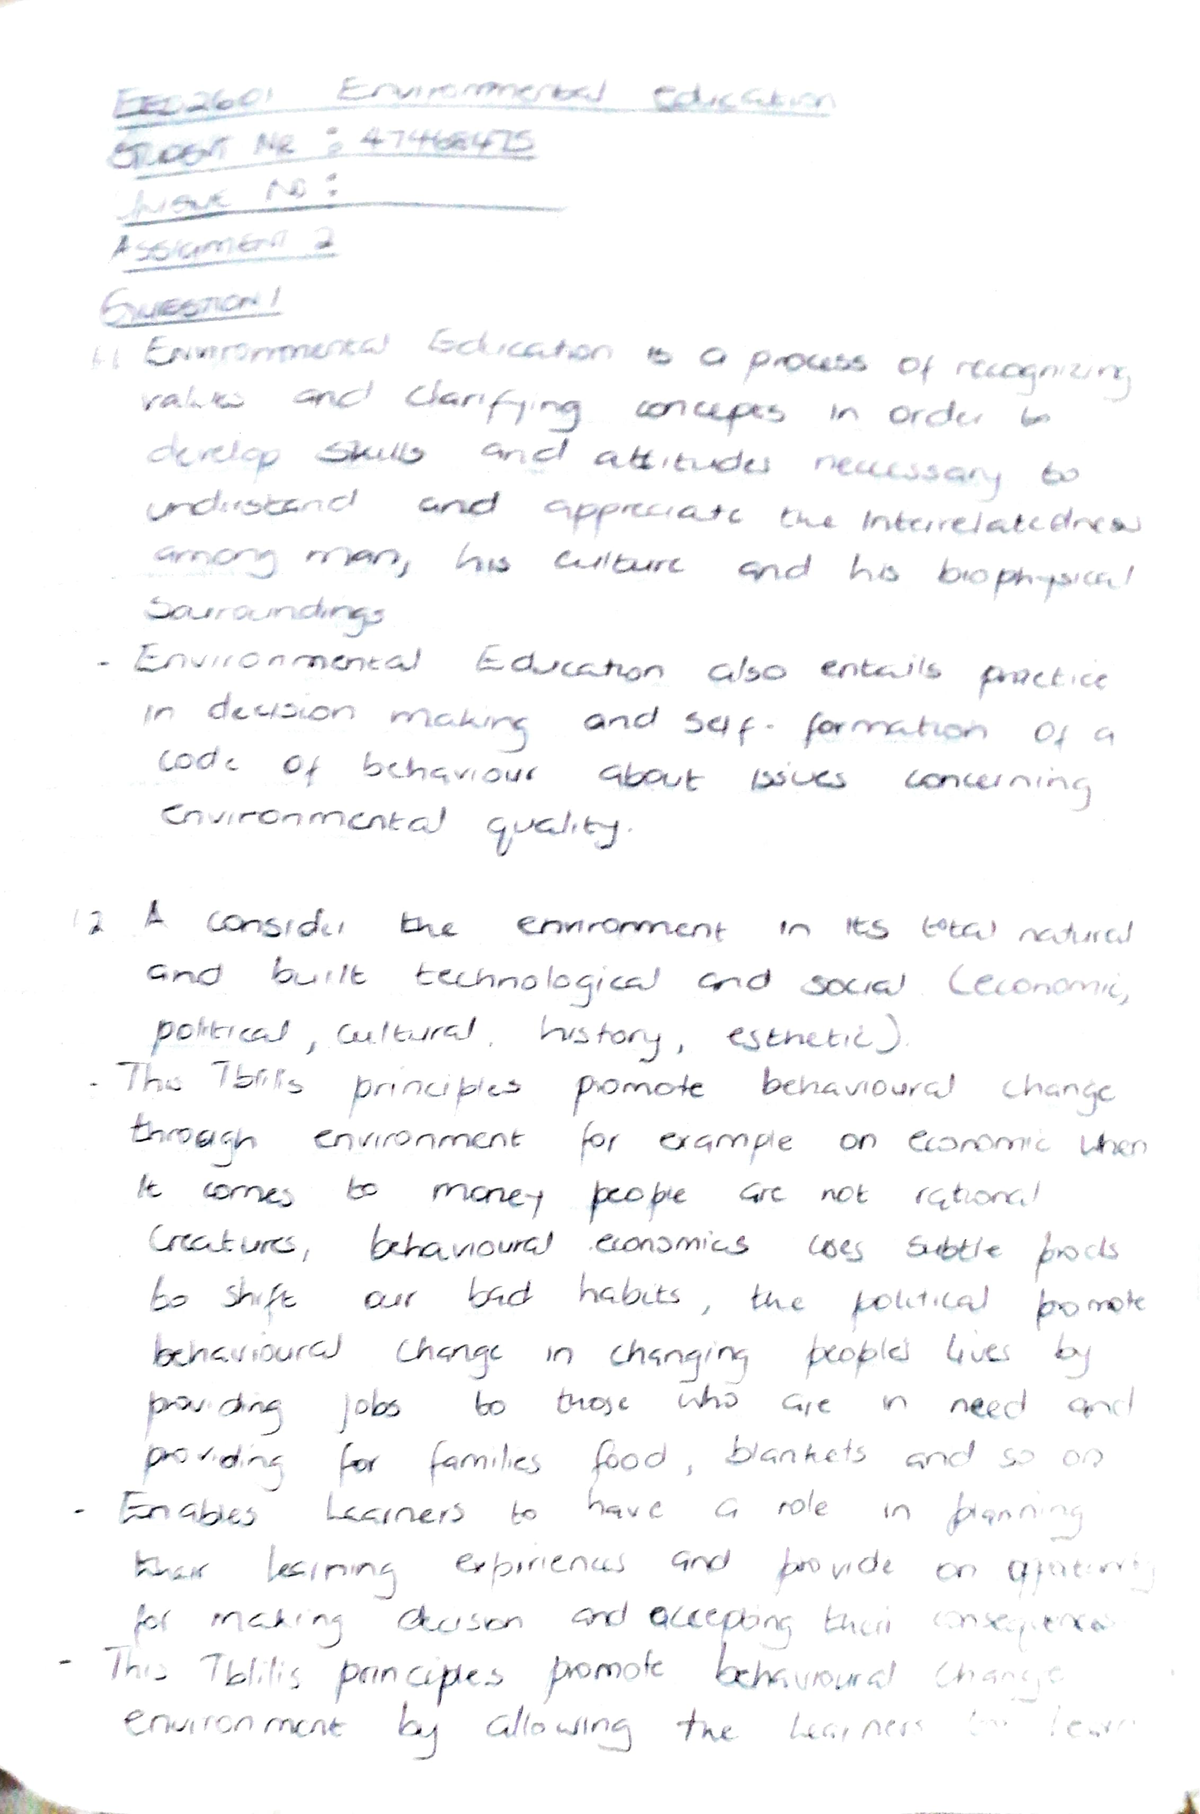 EED2601 Environmental Education
STUDENT NR : 47468475
UNIQUE NO :
ASSIGMENT 2
QUESTION 1
1.1 Environmental Education is a process of recognizing
values and clarifying concepts in order to
develop skills and attitudes necessary to
understand and appreciate the interrelatedness
among man, his culture and his biophysical
sourroundings
- Environmental Education also entails practice
in decision making and self-formation of a
code of behaviour about issues concerning
environmental quality.
1.2 A consider the environment in its total natural
and built technological and social (economic,
political, cultural, history, esthetic).
- This Tbilis principles promote behavioural change
through environment for example on economic when
it comes to money people are not rational
creatures, behavioural economics uses subtle prods
to shift our bad habits, the political promote
behavioural change in changing people's lives by
providing jobs to those who are in need and
providing for families food, blankets and so on
- Enables Learners to have a role in planning
their learning expiriences and provide an
for making decision and accepting their consequences
- This Tblilis principles promote behavioural change
environment by allowing the learners to learn